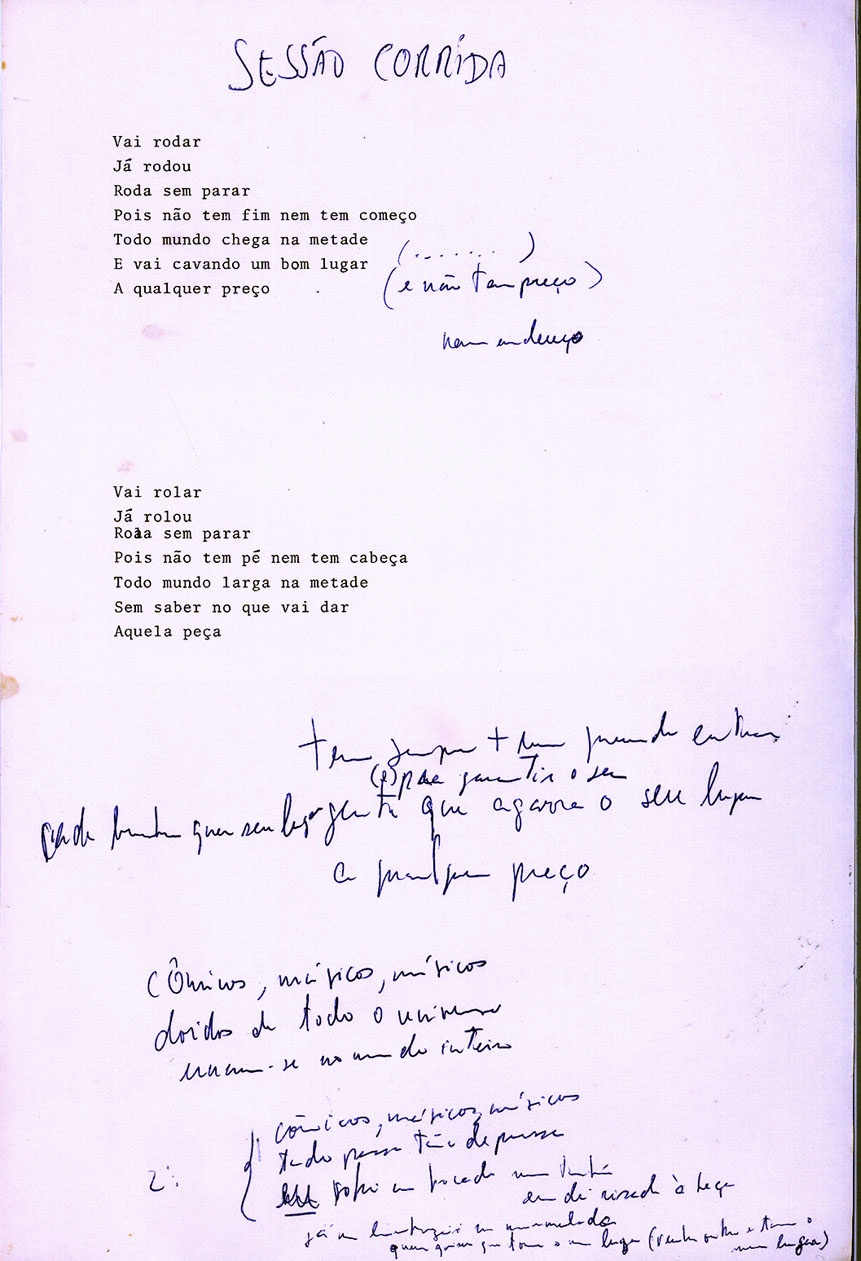 SESSÃO CORRIDA
Vai rodar
Já rodou
Roda sem parar
Pois não tem fim nem tem começo
Todo mundo chega na metade
(.......)
E vai cavando um bom lugar
(e não tem preço)
A qualquer preço
nem endereço
Vai rolar
Já rolou
Rola sem parar
Pois não tem pé nem tem cabeça
Todo mundo larga na metade
Sem saber no que vai dar
Aquela peça
tem sempre + um querendo entrar
(e) pra garantir o seu
quer seu lugar gente que agarra o seu lugar
a qualquer preço
Cômicos, mágicos, músicos
doidos de todo o universo
unam-se no mundo inteiro
2ª:
cômicos, mágicos, músicos
tudo passa tão depressa
um bocado
à beça
já
lugar (